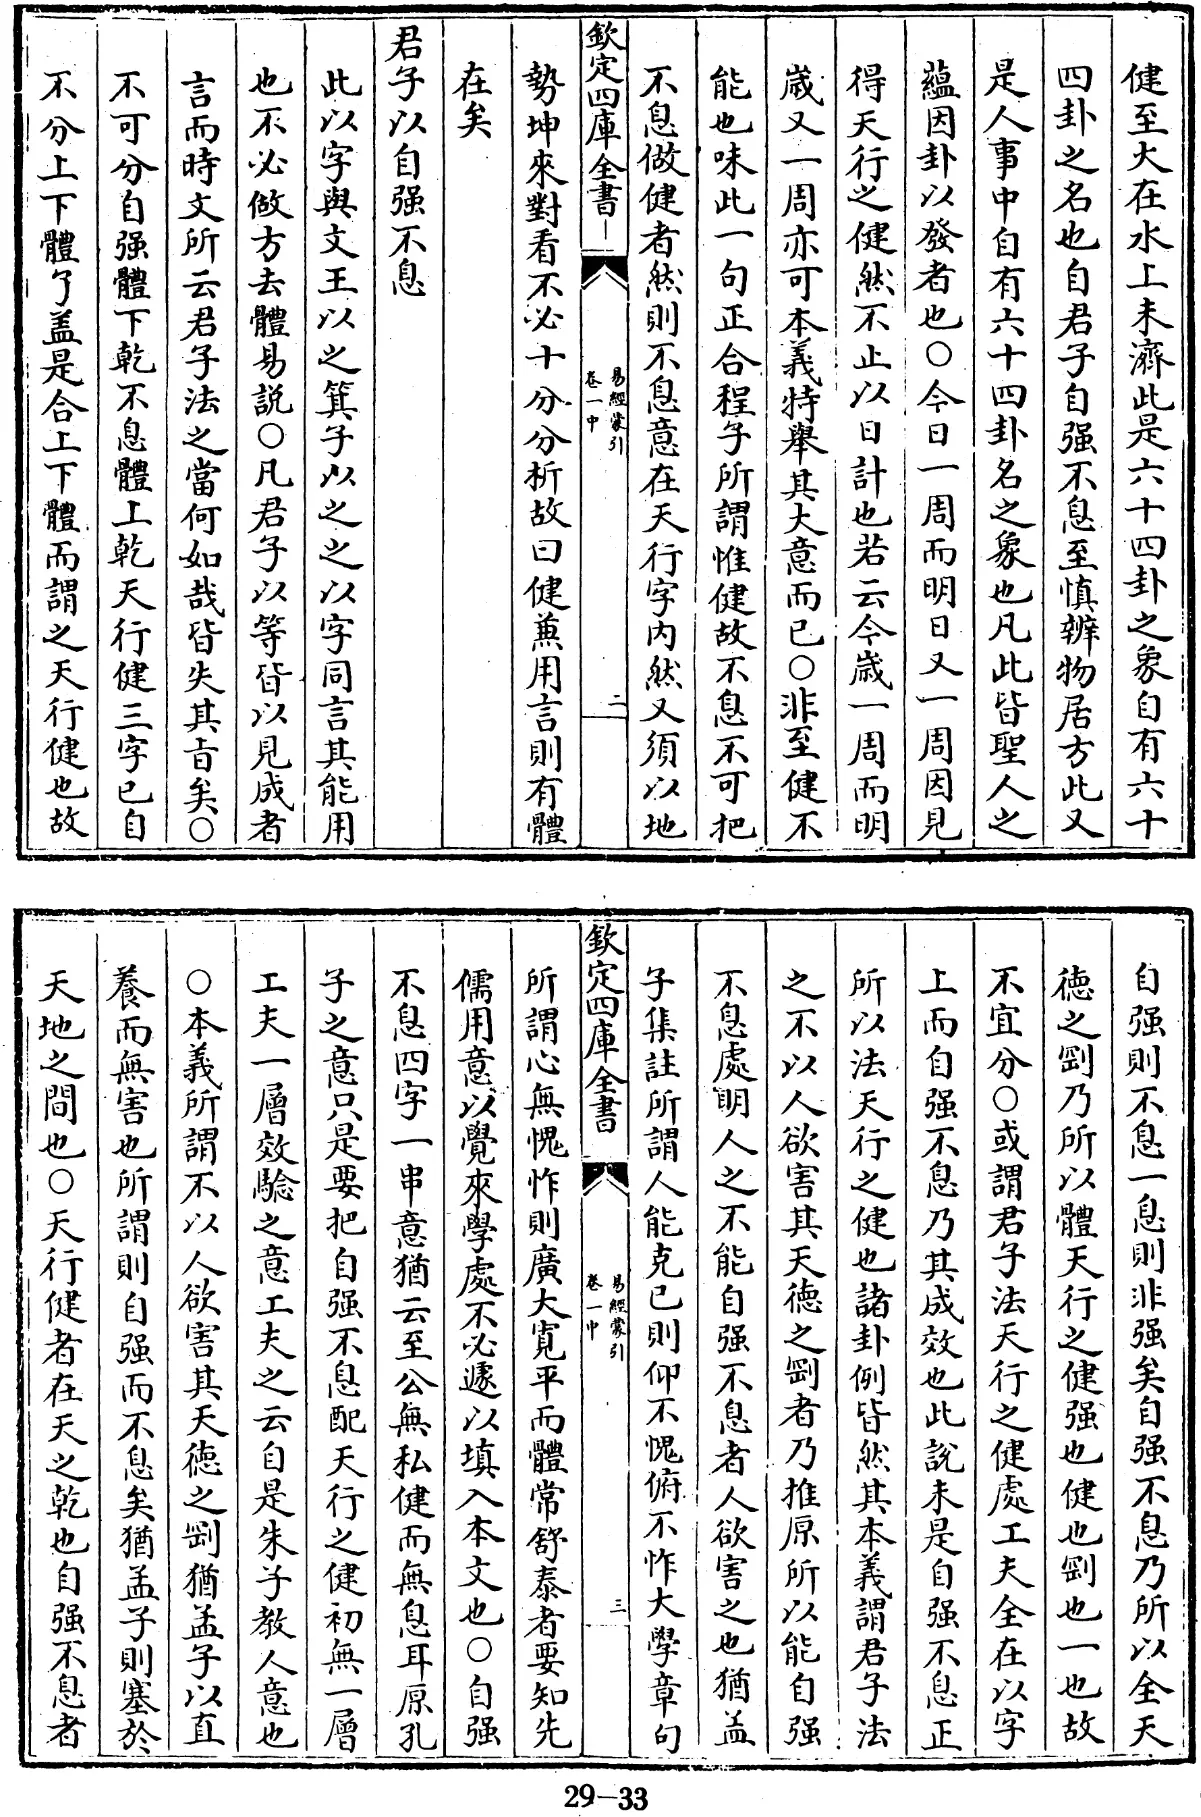 健至大在水上未濟此是六十四卦之象自有六十
四卦之名也自君子自强不息至慎辨物居方此又
是人事中自有六十四卦名之象也凡此皆聖人之
蘊因卦以發者也〇今日一周而明日又一周因見
得天行之健然不止以日計也若云今歳一周而明
歳又一周亦可本義特舉其大意而已〇非至健不
能也味此一句正合程子所謂惟健故不息不可把
不息做健者然則不息意在天行字内然又須以地
欽定四庫全書
易經蒙引
卷一中
二
勢坤來對看不必十分分析故曰健兼用言則有體
在矣
君子以自强不息
此以字與文王以之箕子以之之以字同言其能用
也不必做方去體易説〇凡君子以等皆以見成者
言而時文所云君子法之當何如哉皆失其旨矣〇
不可分自强體下乾不息體上乾天行健三字已自
不分上下體了盖是合上下體而謂之天行健也故
自强則不息一息則非强矣自强不息乃所以全天
徳之剛乃所以體天行之健强也健也剛也一也故
不宜分〇或謂君子法天行之健處工夫全在以字
上而自强不息乃其成效也此說未是自强不息正
所以法天行之健也諸卦例皆然其本義謂君子法
之不以人欲害其天徳之剛者乃推原所以能自强
不息處明人之不能自强不息者人欲害之也猶孟
子集註所謂人能克己則仰不愧俯不怍大學章句
欽定四庫全書
易經蒙引
卷一中
三
所謂心無愧怍則廣大寛平而體常舒泰者要知先
儒用意以覺來學處不必遽以填入本文也〇自强
不息四字一串意猶云至公無私健而無息耳原孔
子之意只是要把自强不息配天行之健初無一層
工夫一層效驗之意工夫之云自是朱子教人意也
〇本義所謂不以人欲害其天徳之剛猶孟子以直
養而無害也所謂則自强而不息矣猶孟子則塞於
天地之間也〇天行健者在天之乾也自强不息者
29-33